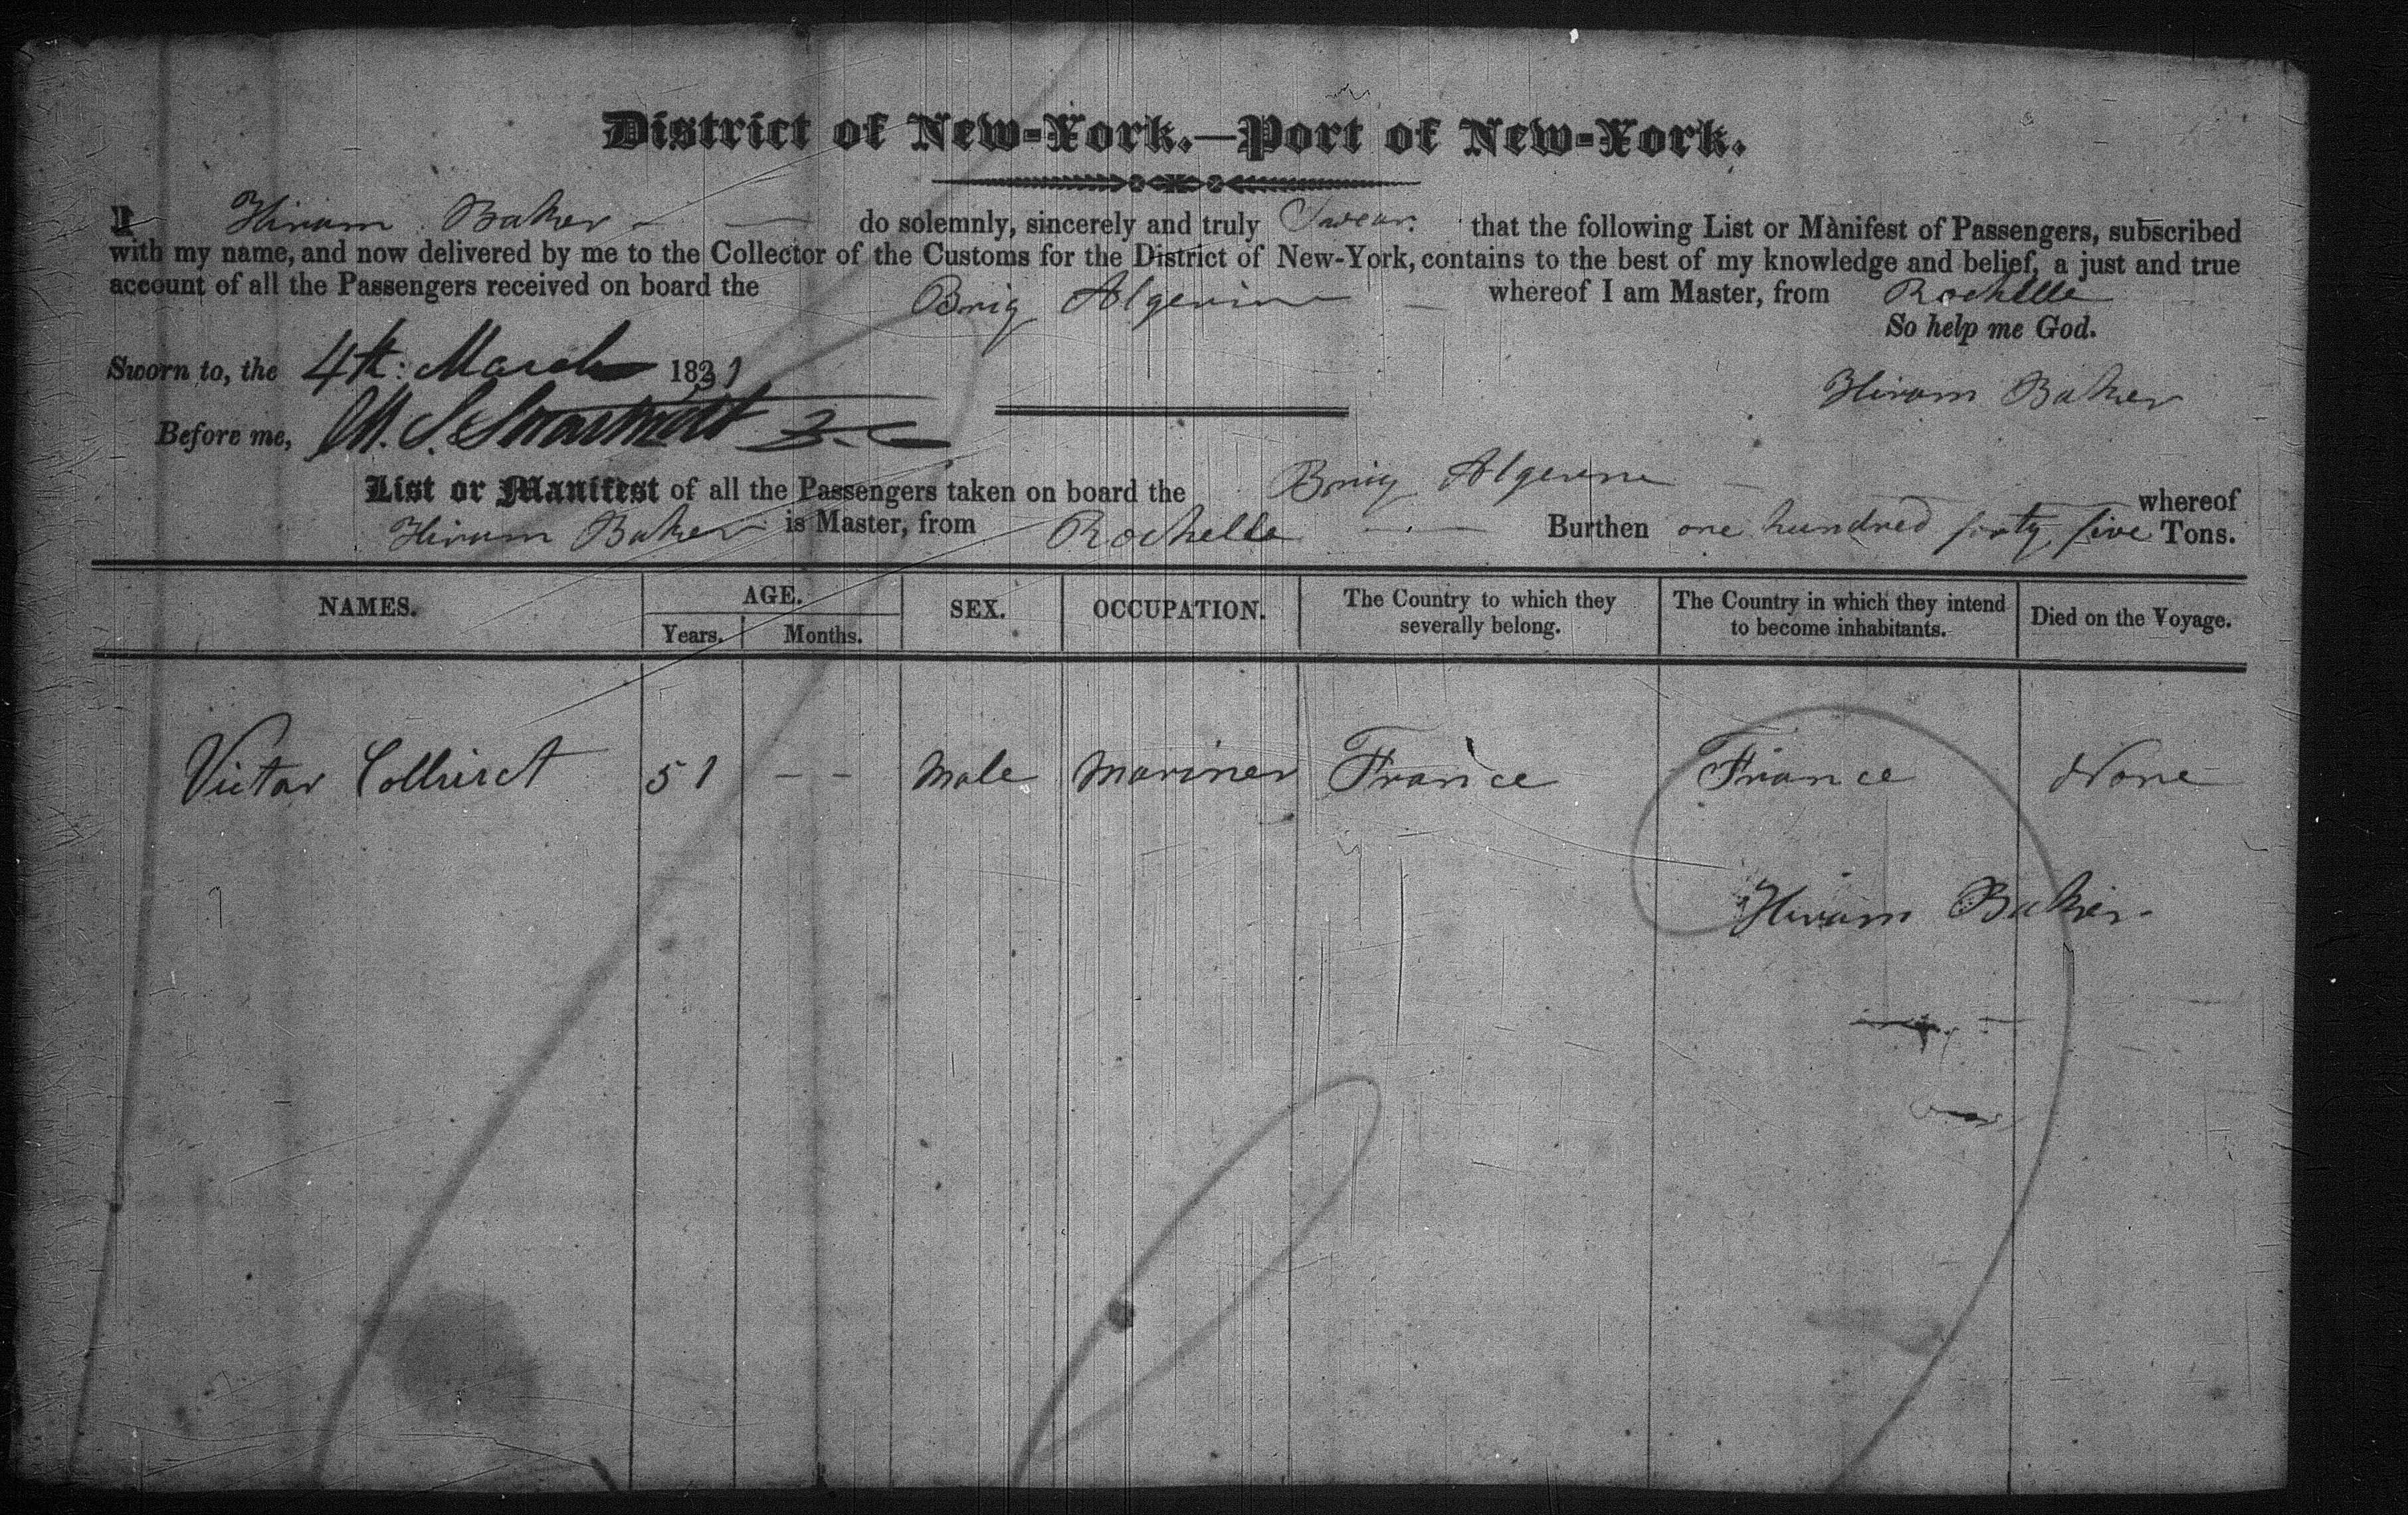 District of New-York.—Port of New-York.
I Hiram Baker do solemnly, sincerely and truly Swear that the following List or Manifest of Passengers, subscribed
with my name, and now delivered by me to the Collector of the Customs for the District of New-York, contains to the best of my knowledge and belief, a just and true
account of all the Passengers received on board the Brig Algerine whereof I am Master, from Rochelle
So help me God.
Sworn to, the 4th: March 1831
Hiram Baker
Before me,
List or Manifest of all the Passengers taken on board the Brig Algerine whereof
Hiram Baker is Master, from Rochelle Burthen one hundred sixty five Tons.
NAMES. AGE. SEX. OCCUPATION. The Country to which they severally belong. The Country in which they intend to become inhabitants. Died on the Voyage.
Years. Months.
Victor 51 - - Male Mariner France France None
Hiram Baker